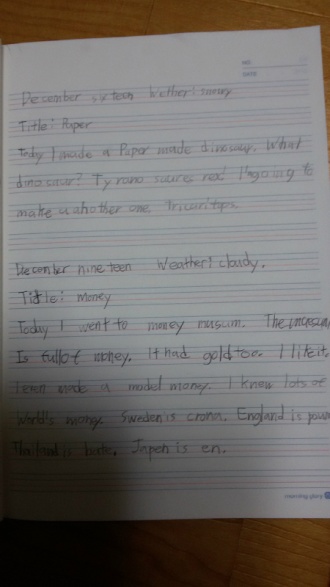 NO.
DATE
December sixteen Wether: sunny
Title: Paper
Today I made a Paper made dinosaur. What
dinosaur? Tyrano saures rex! I'ngoing to
make uahother one Tricuritops.
December nine teen Weather: cloudy.
Title: money
Today I went to money musum. The musum
Is fullof money. It had gold toe. I like it.
I even made a model money. I knew lots of
World's money. Sweden is crona. England is poun
Thailand is bate. Japen is en.
morning glory